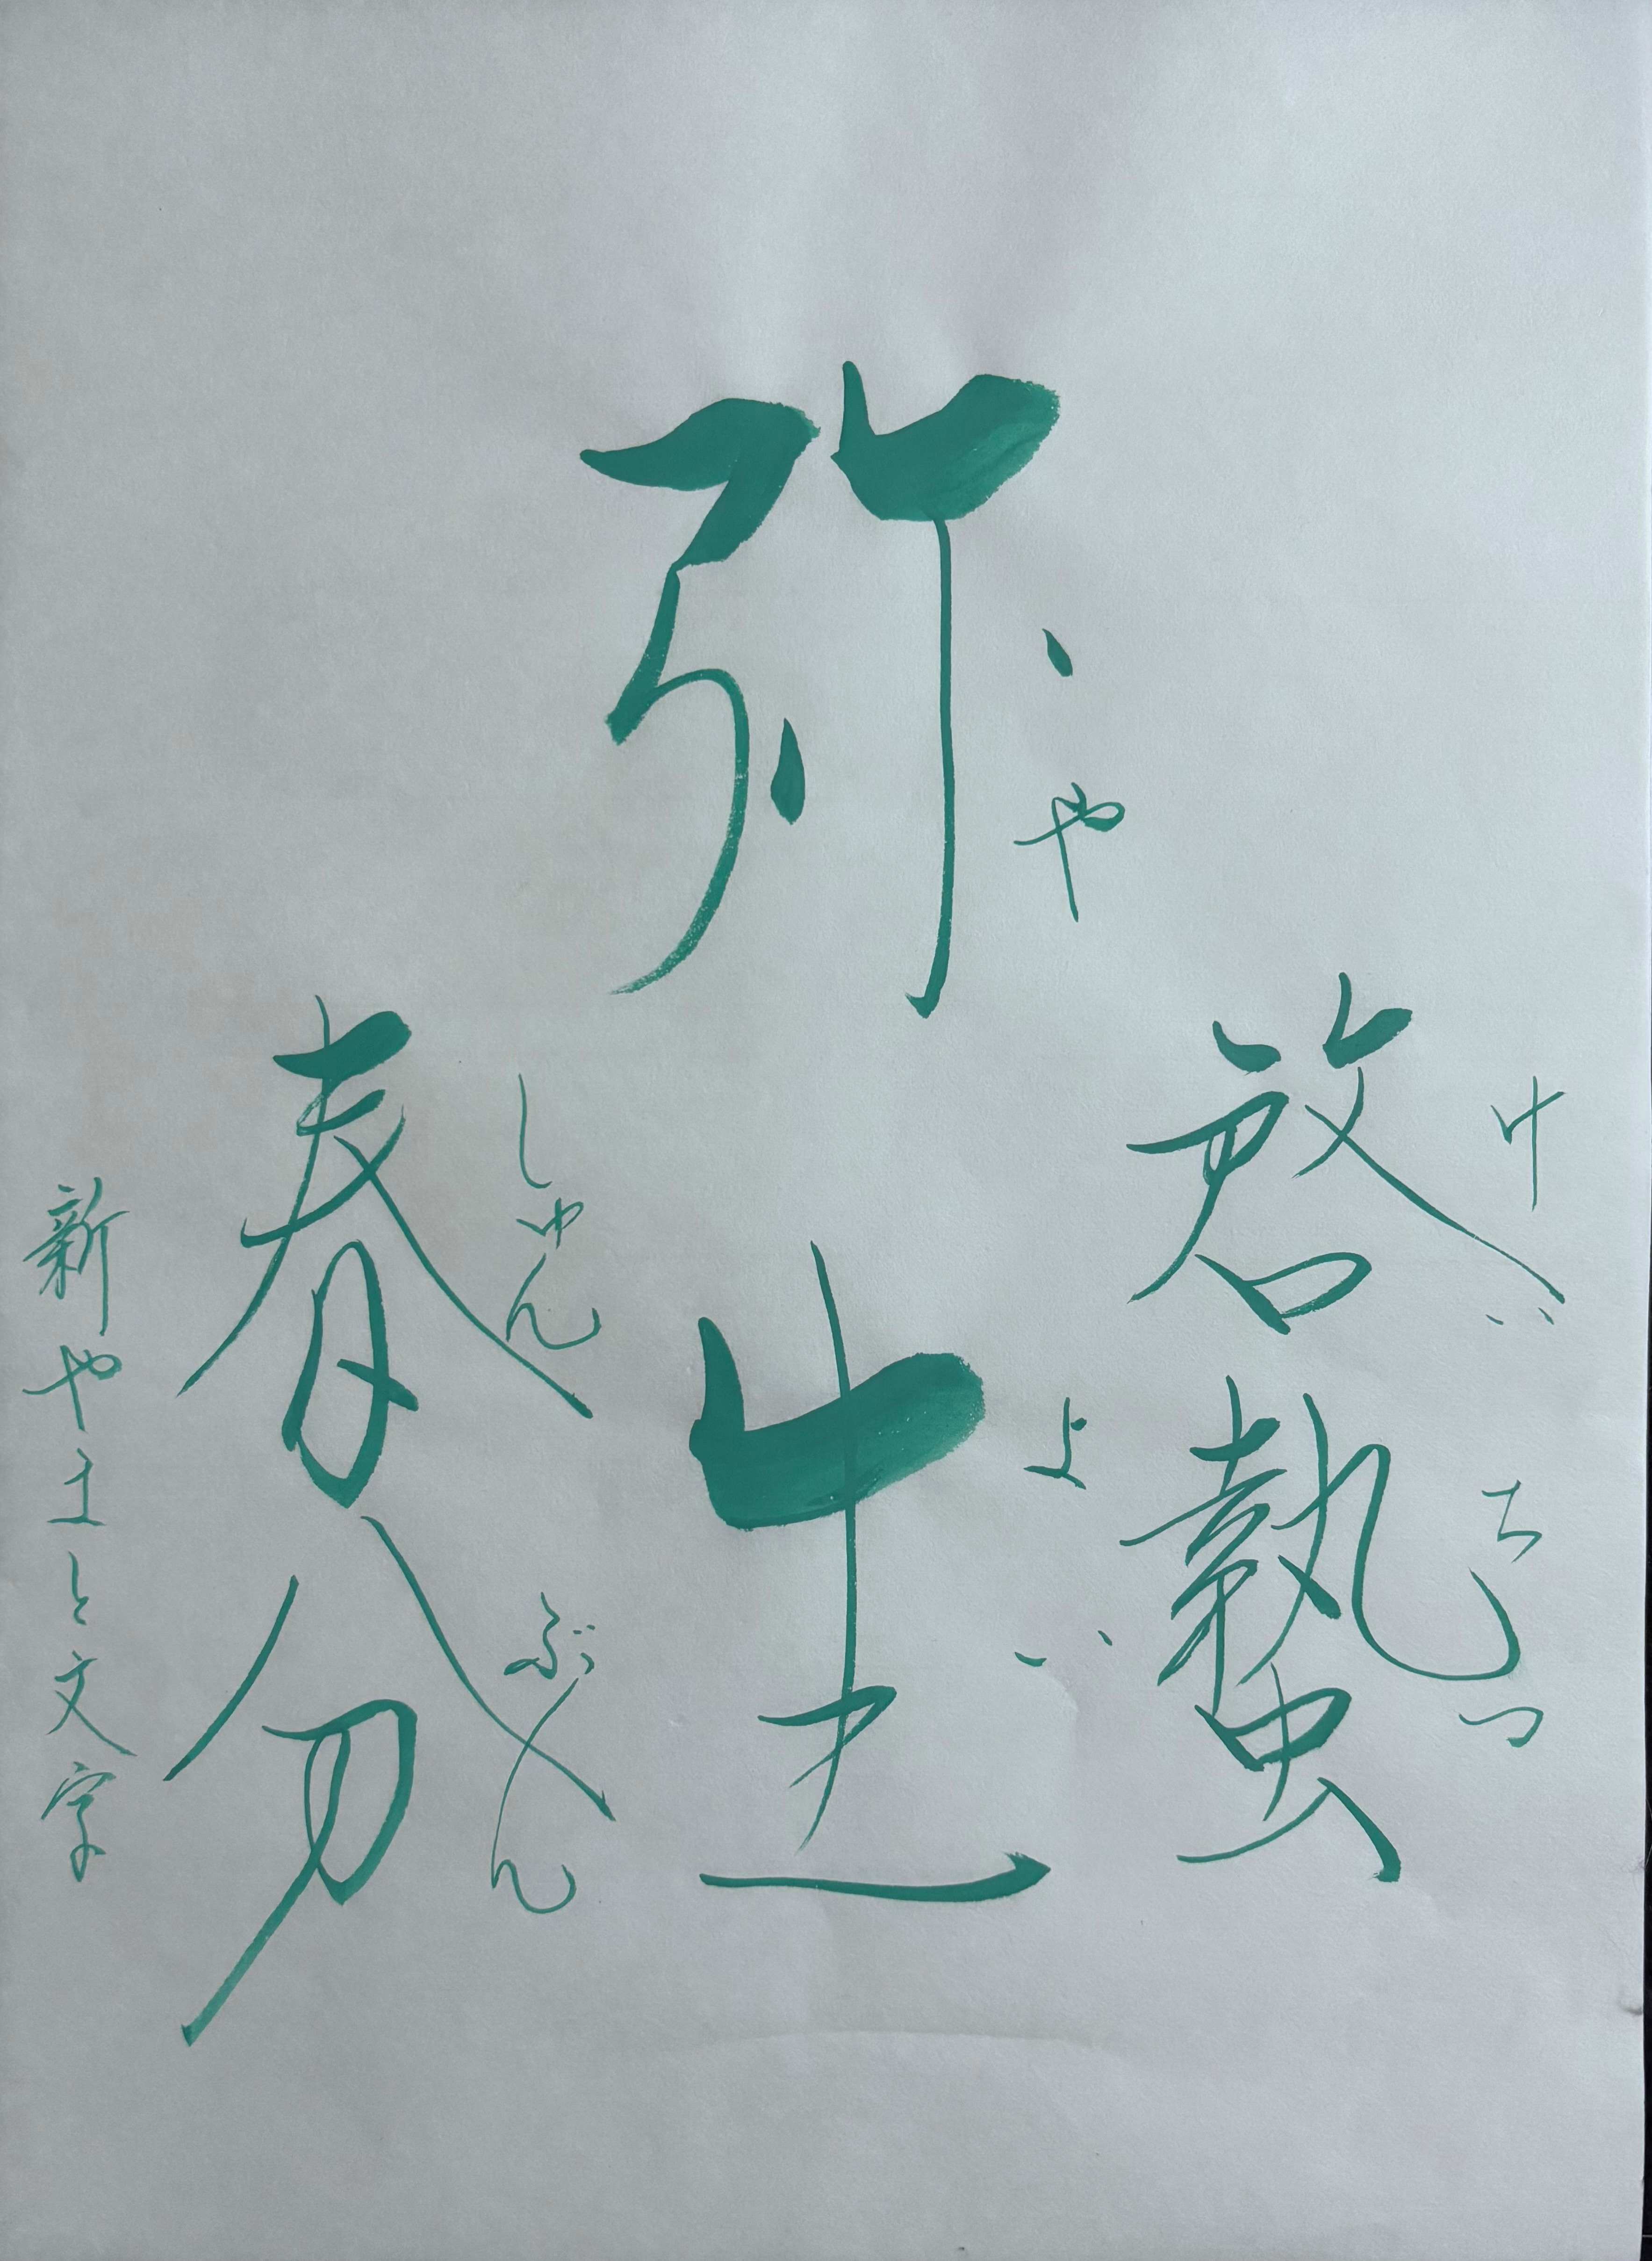 啓蟄
けいちつ
弥生
やよい
春分
しゅんぶん
新やまと文字